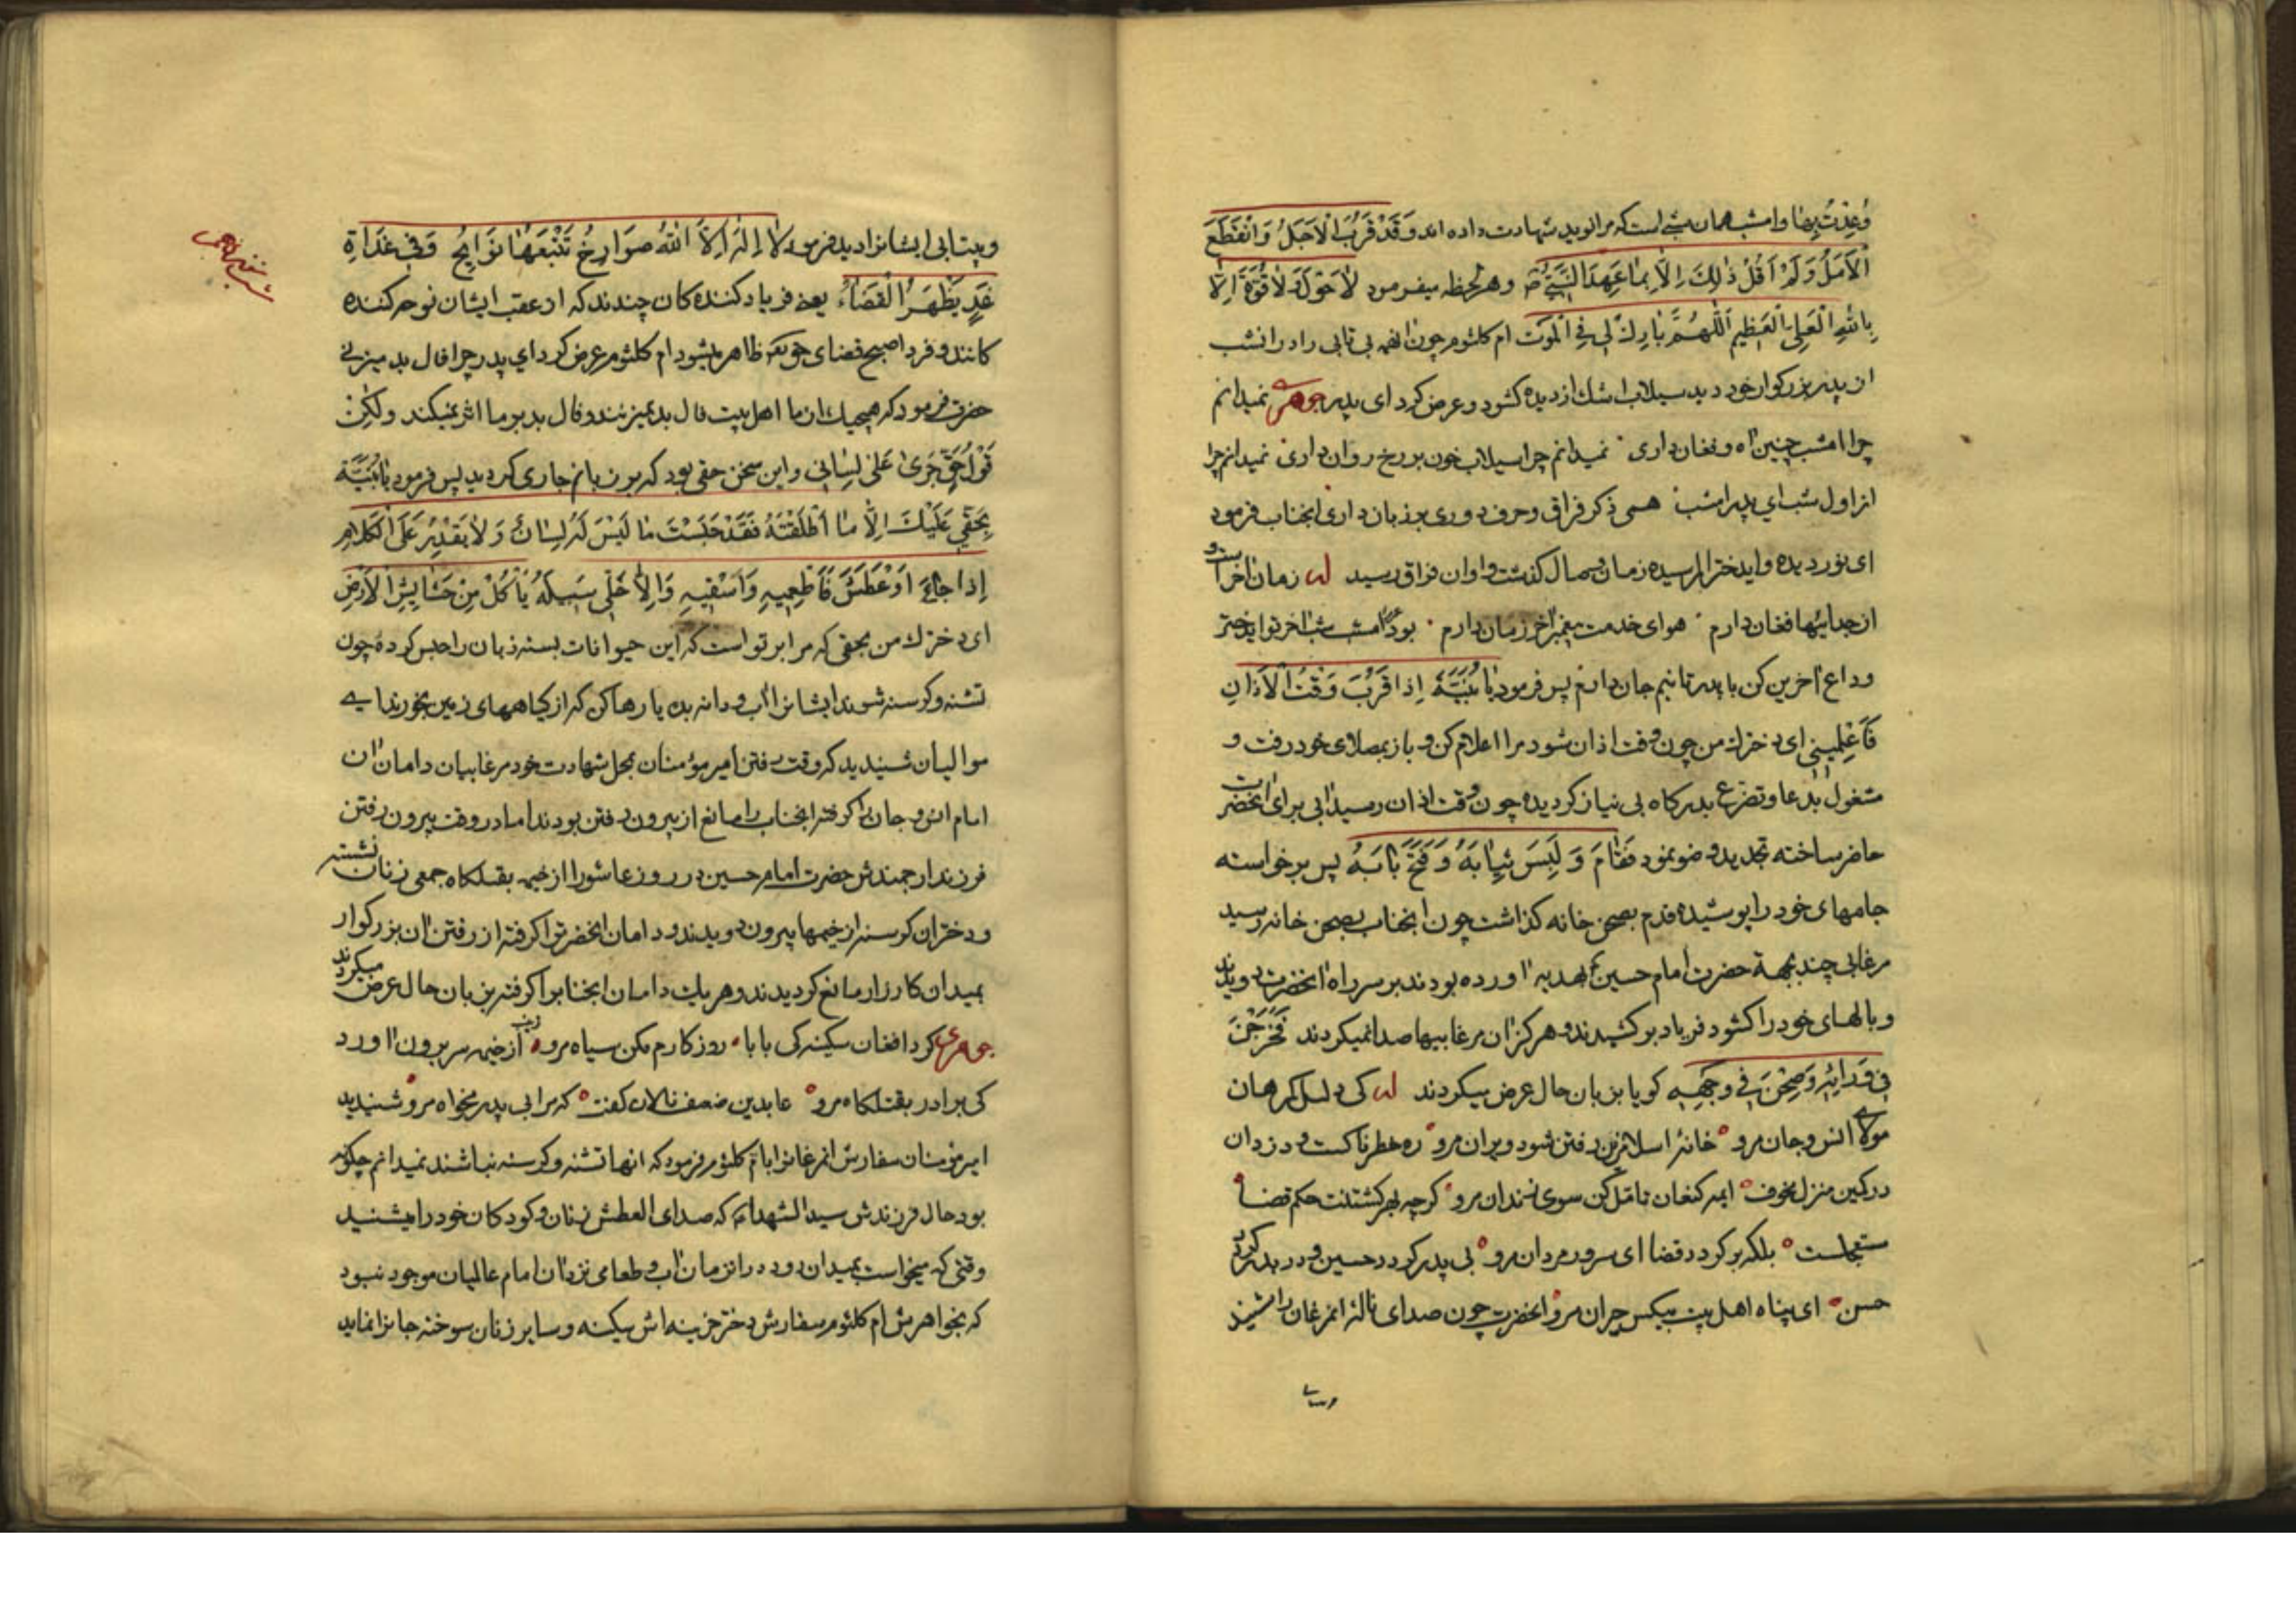 وُعِدْتُ بِهَا و امشب همان شبی است که مرا نوید شهادت داده اند وَقَدْ قَرُبَ الْأَجَلُ وَانْقَطَعَ
الْأَمَلُ وَلَمْ أَقُلْ ذَلِكَ إِلَّا بِمَا عَهِدَ النَّبِيُّ ص و هر لحظه میفرمود لَا حَوْلَ وَلَا قُوَّةَ إِلَّا
بِاللَّهِ الْعَلِيِّ الْعَظِيمِ اَللَّهُمَّ بَارِكْ لِي فِي الْمَوْتِ ام کلثوم چون انهمه بی تابی را در انشب
از پدر بزرگوار خود دید سیلاب اشک از دیده کشود و عرض کرد ای پدر جوهری نمیدانم
چرا امشب چنین اه و فغان داری نمیدانم چرا سیلاب خون بر رخ روان داری نمیدانم چرا
از اول شب ای پدر امشب همی ذکر فراق و حرف دوری بر زبان داری انجناب فرمود
ای نور دیده و ایدختر الم رسیده زمان وصال کذشت و اوان فراق رسید له زمان اخر است و
از جدائیها فغان دارم هوای خدمت پیغمبر اخر زمان دارم بود امشب شب اخر تو ایدختر
وداع اخرین کن با پدر تا نیم جان دارم پس فرمود يَا بُنَيَّةُ إِذَا قَرُبَ وَقْتُ الْأَذَانِ
فَأَعْلِمِينِي ای دخترک من چون وقت اذان شود مرا اعلام کن و باز بمصلای خود رفت و
مشغول بدعا و تضرع بدرکاه بی نیاز کردیده چون وقت اذان رسید ابی برای انحضرت
حاضر ساخته تجدید وضو نمود فَقَامَ وَ لَبِسَ ثِيَابَهُ وَ فَتَحَ بَابَهُ پس برخواسته
جامهای خود را پوشیده قدم بصحن خانه کذاشت چون انجناب بصحن خانه رسید
مرغابی چند بجهة حضرت امام حسین ع هدیه اورده بودند بر سر راه انحضرت دویدند
و بالهای خود را کشوده فریاد بر کشیدند و هرکز ان مرغابیها صدا نمیکردند فَخَرَجْنَ
فِي وَرَائِهِ وَصِحْنَ فِي وَجْهِهِ کویا بزبان حال عرض میکردند له کی دلیل کمرهان
مولای انس و جان مرو خانهٔ اسلام زین رفتن شود ویران مرو ره خطرناکست و دزدان
در کمین منزل مخوف ایمه کنعان تامل کن سوی زندان مرو کرچه بهر کشتنت حکم قضا
مستعجلست بلکه بر کردد قضا ای سرور مردان مرو بی پدر کردد حسین و در بدر کردد
حسن ای پناه اهل بیت بیکس حیران مرو انحضرت چون صدای نالهٔ انمرغان را شنید
و بیتابی ایشانرا دید فرمود لَا إِلَهَ إِلَّا اللَّهُ صَوَارِخُ تَتْبَعُهَا نَوَايِحُ وَفِي غَدَاةِ
غَدٍ يَظْهَرُ الْقَضَاءُ یعنی فریاد کننده کان چندند که از عقب ایشان نوحه کننده
کانند و فردا صبح قضای حق تعالی ظاهر میشود ام کلثوم عرض کرد ای پدر چرا فال بد میزنی
حضرت فرمود که هیچیک از ما اهل بیت فال بد نمیزنند و فال بد بر ما اثر نمیکند وَلَكِنْ
قَوْلُ حَقٍّ جَرَى عَلَى لِسَانِي و این سخن حقی بود که بر زبانم جاری کردید پس فرمود يَا بُنَيَّةُ
بِحَقِّي عَلَيْكَ إِلَّا مَا أَطْلَقْتَهُ فَقَدْ حَبَسْتَ مَا لَيْسَ لَهُ لِسَانٌ وَلَا يَقْدِرُ عَلَى الْكَلَامِ
إِذَا جَاعَ أَوْ عَطَشَ فَأَطْعِمِيهِ وَأَسْقِيهِ وَإِلَّا خَلِّي سَبِيلَهُ يَأْكُلْ مِنْ حَشَايِشِ الْأَرْضِ
ای دخترک من بحقی که مرا بر تو است که این حیوانات بسته زبان را حبس کرده چون
تشنه و کرسنه شوند ایشانرا اب و دانه بده یا رها کن که از کیاههای زمین بخورند ای
موالیان شنیدید که وقت رفتن امیر مؤمنان بمحل شهادت خود مرغابیان دامان ان
امام انس و جان را کرفته انجناب را مانع از بیرون رفتن بودند اما در وقت بیرون رفتن
فرزند ارجمندش حضرت امام حسین در روز عاشورا از خیمه بقتلکاه جمعی زنان تشنه
و دختران کرسنه از خیمها بیرون دویدند و دامان انحضرترا کرفته از رفتن ان بزرکوار
بمیدان کارزار مانع کردیدند و هریک دامان انجنابرا کرفته بزبان حال عرض میکردند
جوهری کرد افغان سکینه کی بابا روز کارم مکن سیاه مرو زینب از خیمه سر برون اورد
کی برادر بقتلکاه مرو عابدین ضعف نالان کفت که مرا بی پدر مخواه مرو شنیدید
امیر مؤمنان سفارش انمرغانرا بام کلثوم فرمود که انها تشنه و کرسنه نباشند نمیدانم چکونه
بود حال فرزندش سید الشهداء که صدای العطش زنان و کودکان خود را میشنید
وقتی که میخواست بمیدان رود در انزمان اب و طعامی نزد ان امام عالمیان موجود نبود
که بخواهرش ام کلثوم سفارش دختر حزینه اش سکینه و سایر زنان سوخته جانرا نماید